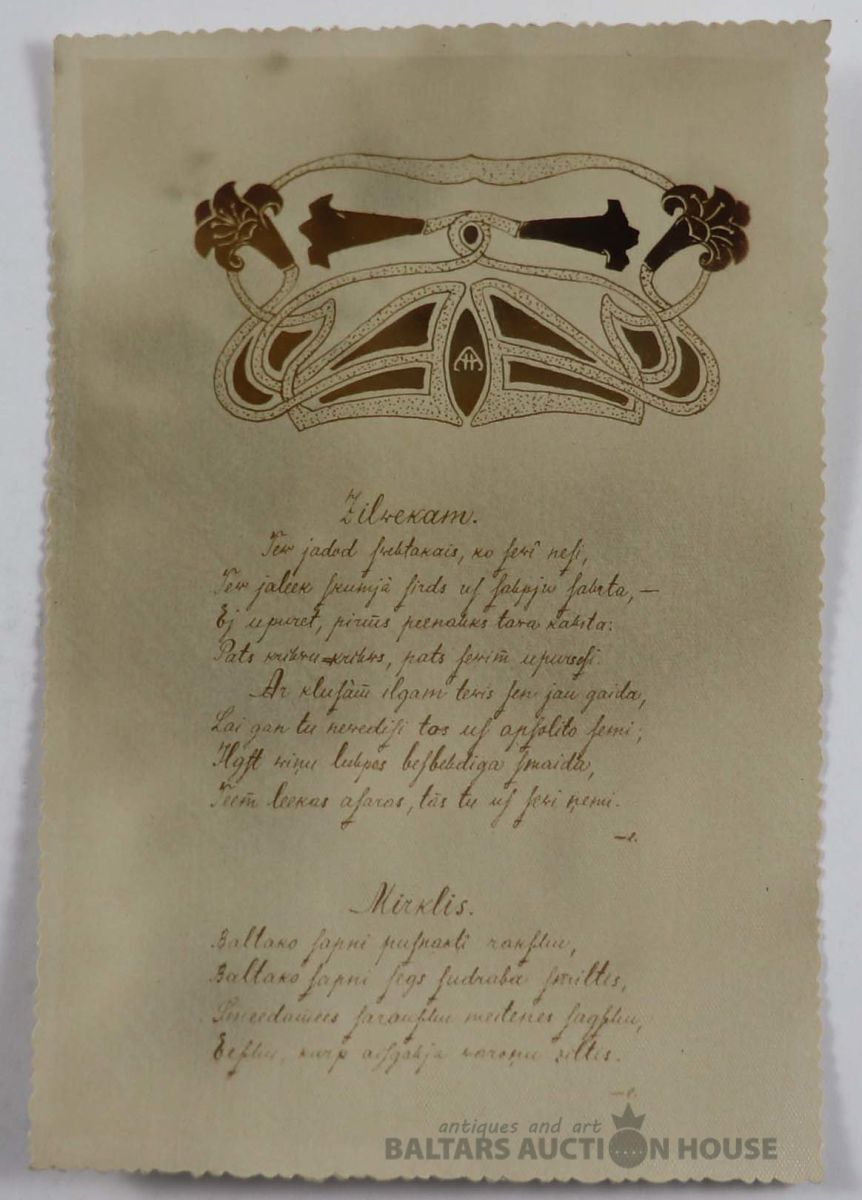 Zilwekam.
Tew jadod swehtakais, ko sewî nesi,
Tew jaleek skumjâ sirds us sahpju sahrta, —
Ej upuret, pirms peenahks tava kahrta:
Pats krihwu=krihws, pats sewim̃ upuresi.
Ar klusàm̃ ilgam tewis sen jau gaida,
Lai gan tu neredisi tos us apsolito semi;
Ilgst wiņu luhpos besbehdiga smaida,
Teem̃ leekas asaras, tàs tu us sewi ņemi.
—e.
Mirklis.
Baltako sapni pusnaktî rakshu,
Baltako sapni segs sudraba smiltis,
Smeedamees saraushu meitenes sagshu,
Eeshu, kurp aisgahja waroņu ziltis.
—e.
antiques and art
BALTARS AUCTION HOUSE